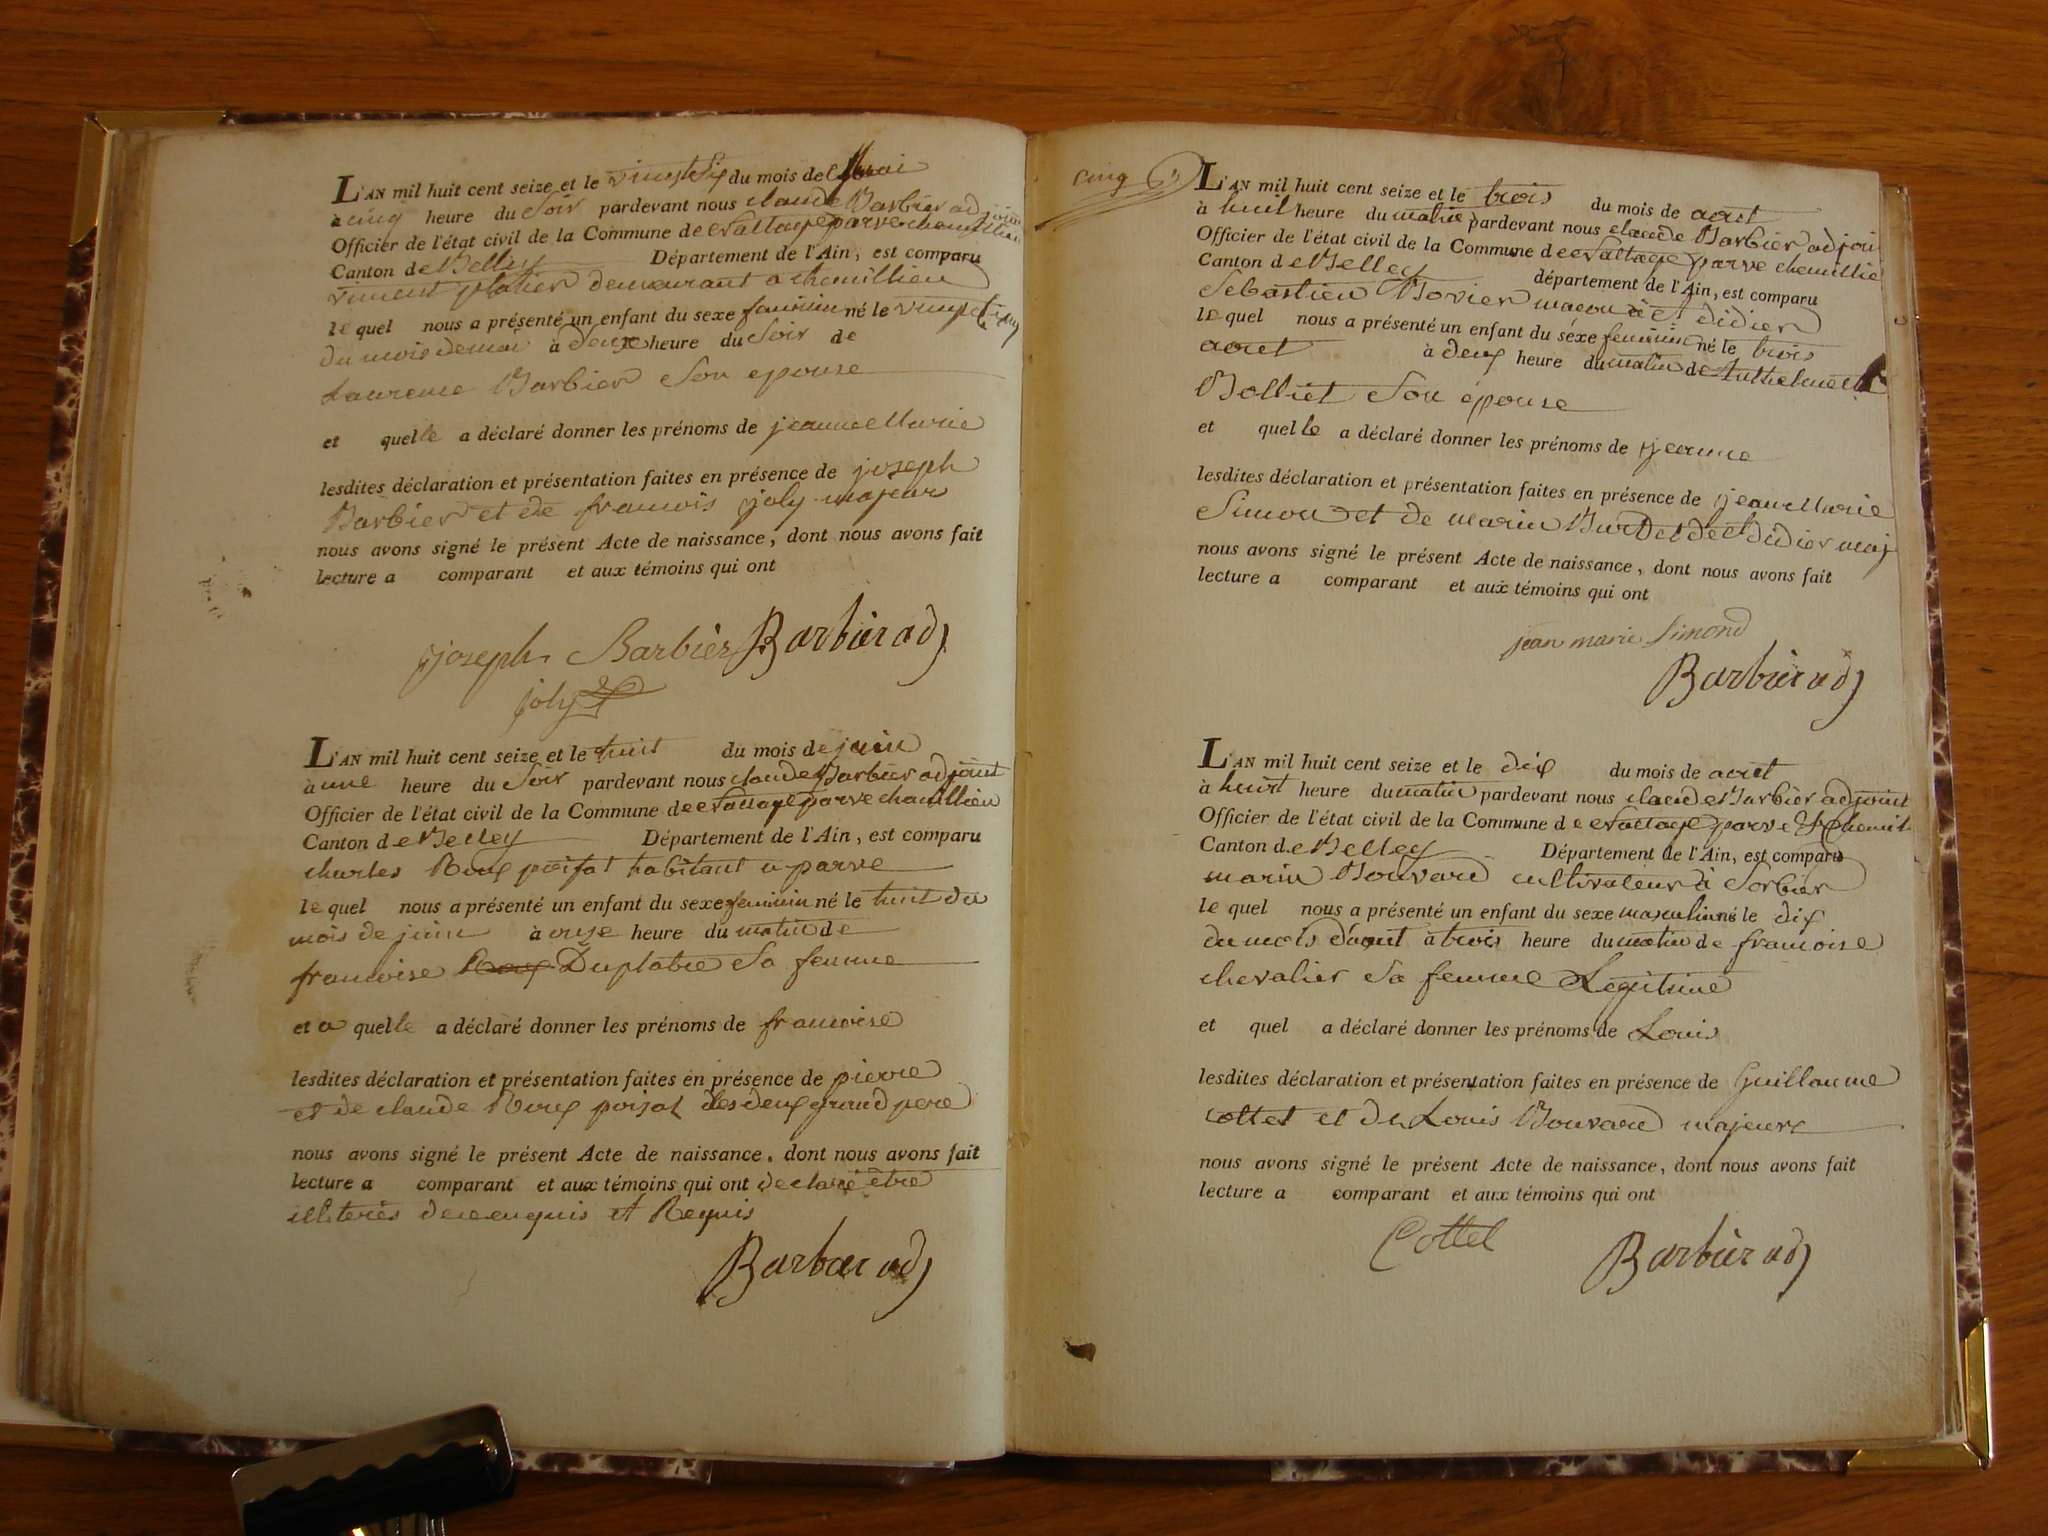 L'AN mil huit cent seize et le vingt Six du mois de mai
à cinq heure du Soir pardevant nous claude Barbier adjoint
Officier de l'état civil de la Commune de parve chemillieu
Canton de Belley Département de l'Ain, est comparu
vincent platier demeurant a chemillieu
le quel nous a présenté un enfant du sexe feminin né le vingt Six
du mois de mai à deux heure du Soir de
Laurence Barbier Son epouse
et quelle a déclaré donner les prénoms de jeanne Marie
lesdites déclaration et présentation faites en présence de joseph
Barbier et de francois joly majeur
nous avons signé le présent Acte de naissance, dont nous avons fait
lecture a comparant et aux témoins qui ont
joseph Barbier Barbier adj
joly
L'AN mil huit cent seize et le huit du mois de juin
à une heure du Soir pardevant nous claude Barbier adjoint
Officier de l'état civil de la Commune de parve chemillieu
Canton de Belley Département de l'Ain, est comparu
charles Roux poisat habitant a parve
le quel nous a présenté un enfant du sexe feminin né le huit du
mois de juin à onze heure du matin de
francoise Duplatre Sa femme
et a quelle a déclaré donner les prénoms de francoise
lesdites déclaration et présentation faites en présence de pierre
et de claude Roux poisat les deux grand pere
nous avons signé le présent Acte de naissance, dont nous avons fait
lecture a comparant et aux témoins qui ont declaré être
illiterés de ce enquis et Requis
Barbier adj
cinq
L'AN mil huit cent seize et le trois du mois de aout
à huit heure du matin pardevant nous claude Barbier adjoi
Officier de l'état civil de la Commune de parve chemillie
Canton de Belley département de l'Ain, est comparu
Sebastien Bovier macon a St didier
le quel nous a présenté un enfant du séxe feminin né le trois
aout à deux heure du matin de Anthelmette
Bolliet Son épouse
et quelle a déclaré donner les prénoms de jeanne
lesdites déclaration et présentation faites en présence de jean Marie
Simon et de marin Burdet de St didier maj
nous avons signé le présent Acte de naissance, dont nous avons fait
lecture a comparant et aux témoins qui ont
jean marie Simond
Barbier adj
L'AN mil huit cent seize et le dix du mois de aout
à heuit heure du matin pardevant nous claude Barbier adjoint
Officier de l'état civil de la Commune de parve & chemil
Canton de Belley Département de l'Ain, est comparu
marin Bouvard cultivateur à Sorbier
le quel nous a présenté un enfant du sexe masculin né le dix
du mois d'aout à trois heure du matin de francoise
chevalier Sa femme Legitime
et quel a déclaré donner les prénoms de Louis
lesdites déclaration et présentation faites en présence de Guillaume
cottet et de Louis Bouvard majeurs
nous avons signé le présent Acte de naissance, dont nous avons fait
lecture a comparant et aux témoins qui ont
Cottet Barbier adj